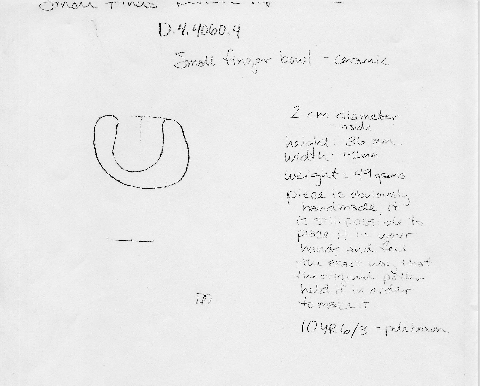 Small finds
D.4.4060.4
Small finger bowl - ceramic
2 cm diameter
inside
height: 36 mm
width:
weight: 49 grams
piece is obviously
handmade, it
is possible to
place it in your
hands and feel
the exact way that
the potter
held it in order
to make it
10YR 6/3 - pale brown